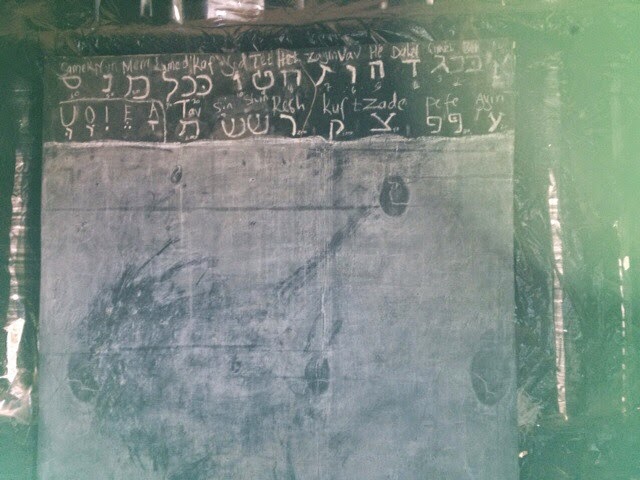 Samek Nun Mem Lamed Kaf Yod Tet Het Zayin Vav He Dalet Gimel
ס נ מ ככל י ט ח ז ו ה ד ג בב א
U O I E A Tav Sin Shin Resh Kuf Tzade Pe Fe Ayin
ת שש ר ק צ פפ ע